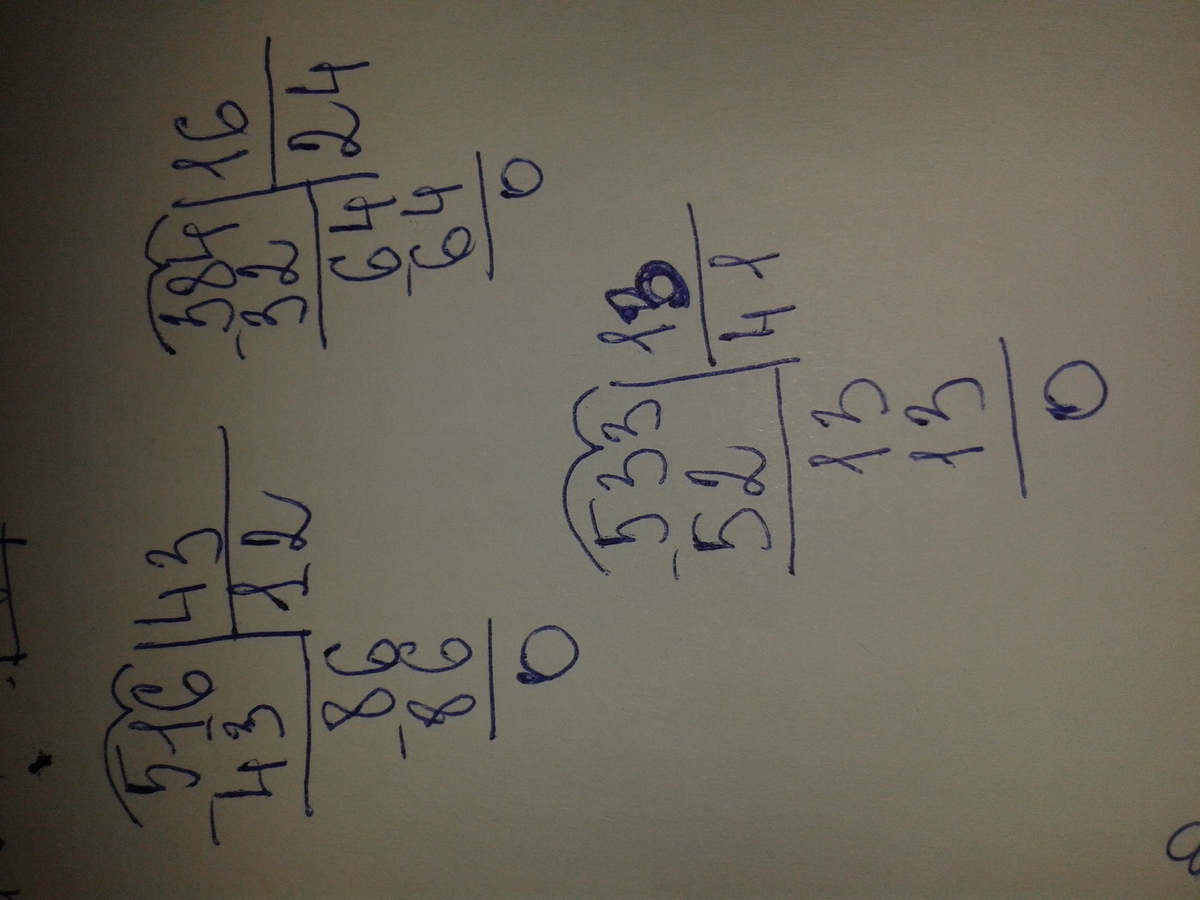 516 43
-43 12
86
-86
0
384 16
-32 24
64
-64
0
533 13
-52 41
13
13
0